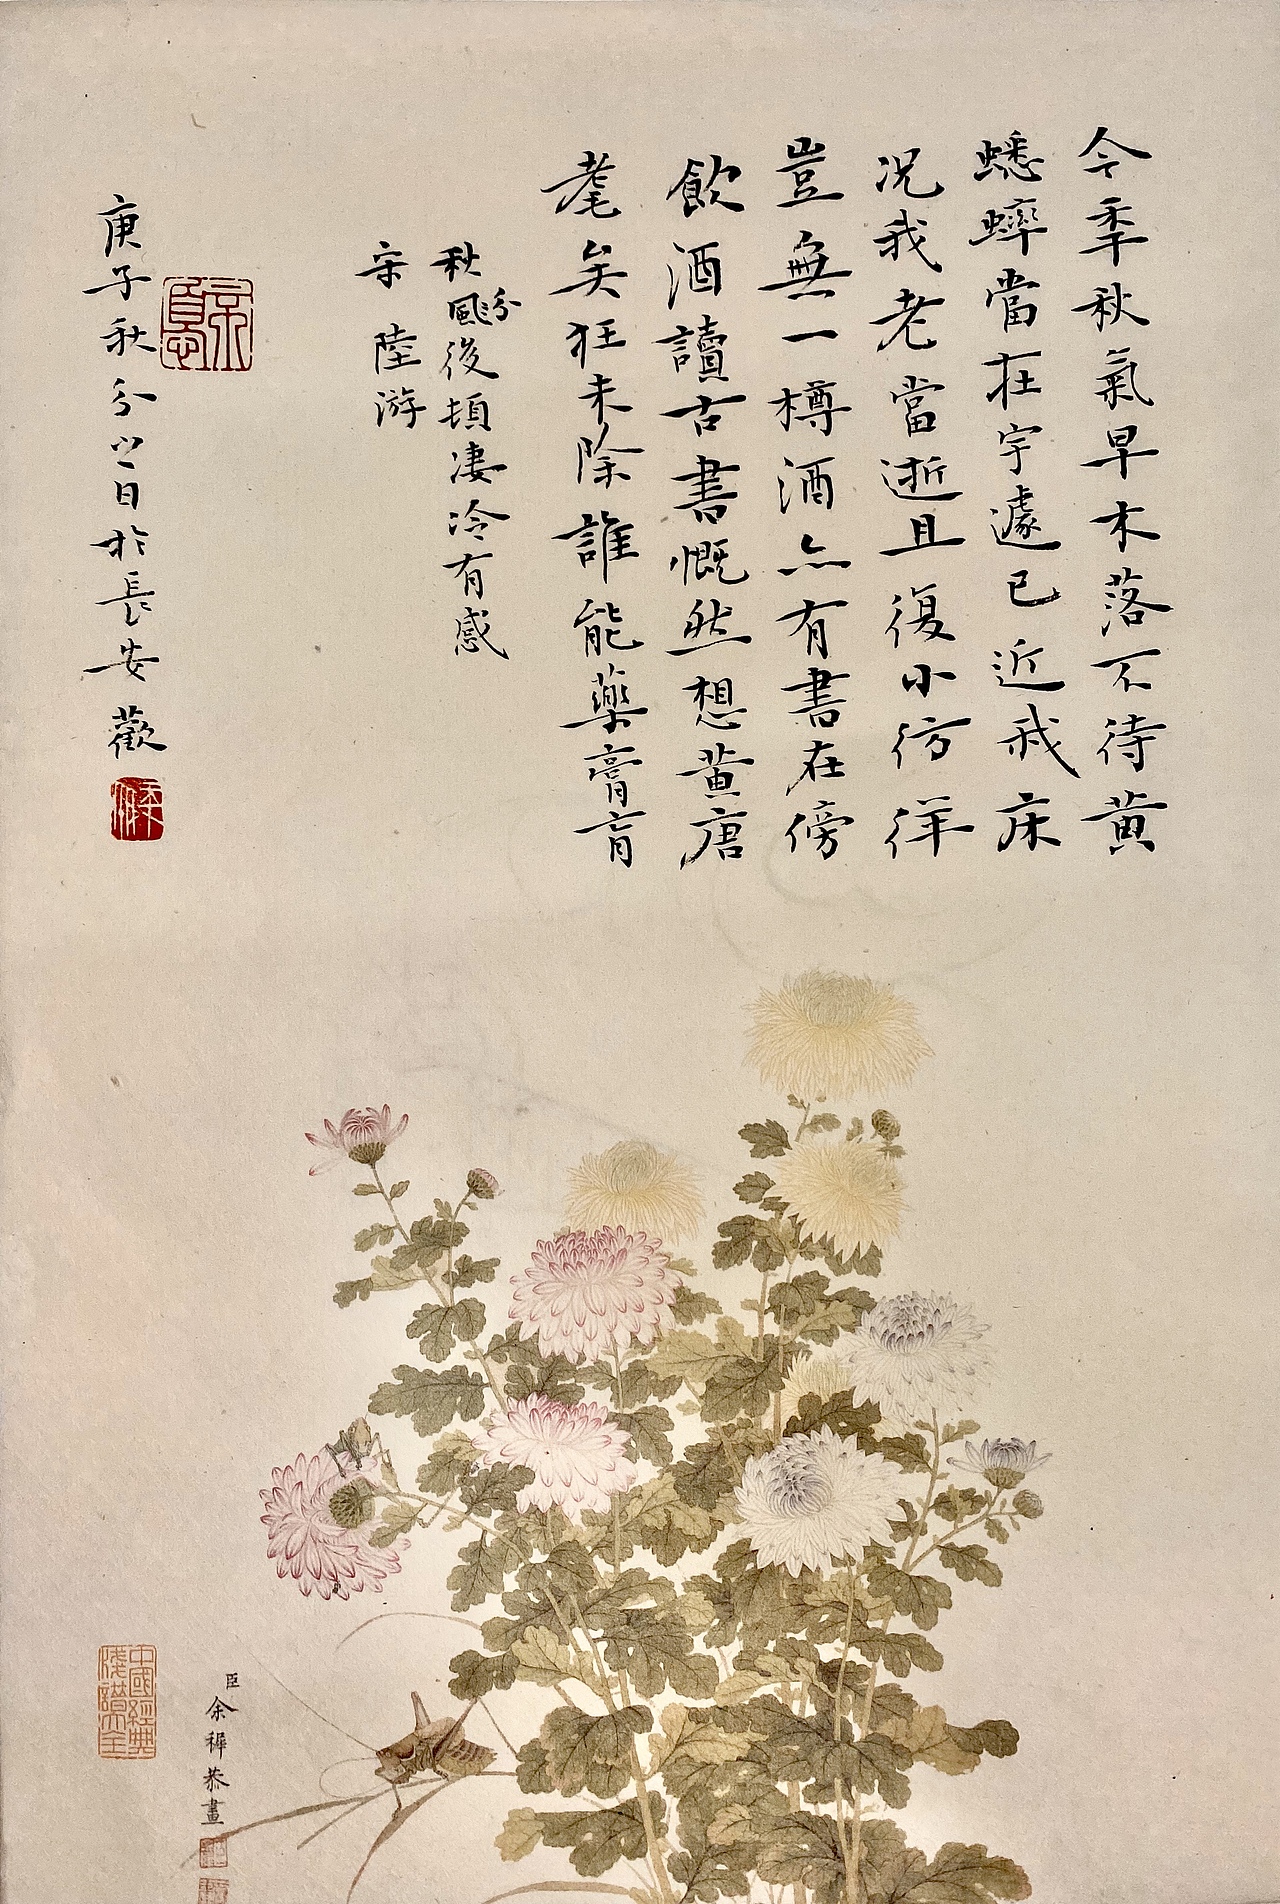 今秊秋氣早木落不待黃
蟋蟀當在宇遽已近我床
况我老當逝且復小彷徉
豈無一樽酒亦有書在傍
飲酒讀古書慨然想黃唐
耄矣狂未除誰能藥膏肓
秋風分後頓凄冷有感
宋陸游
庚子秋分日於長安歡
臣余穉恭畫
中國經典